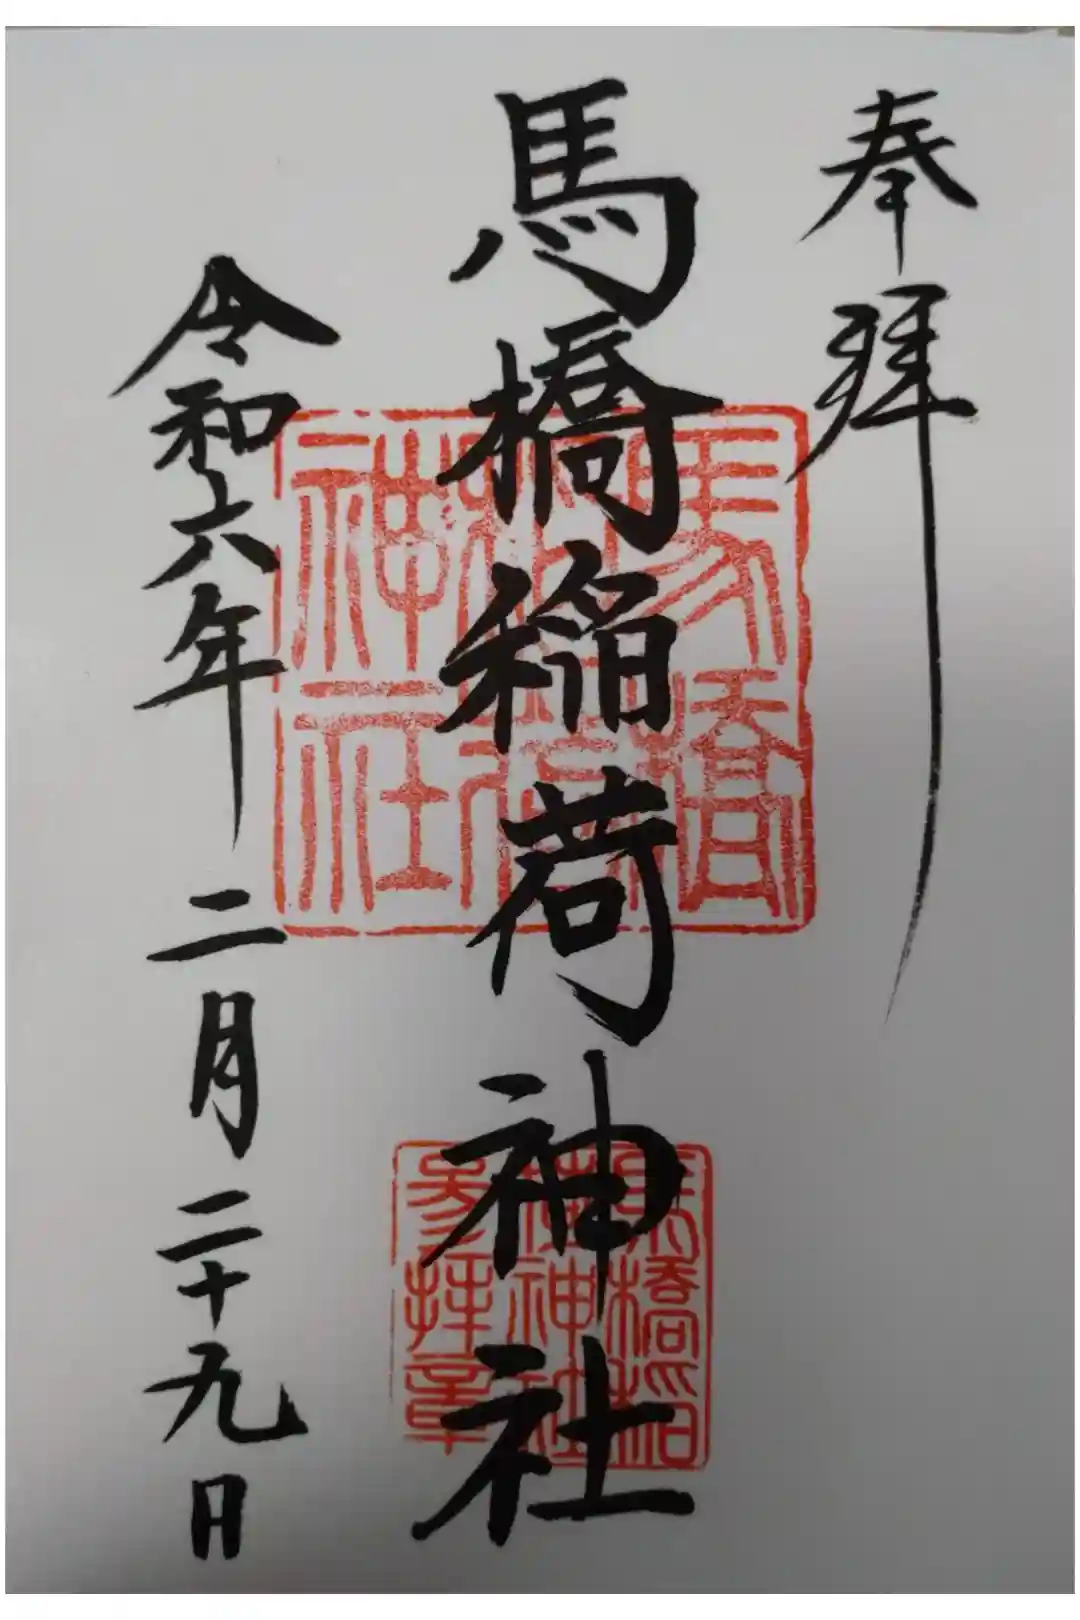 奉拝
馬橋稲荷神社
令和六年 二月 二十九日
馬橋
稲荷
神社
馬橋稲
荷神社
参拝章